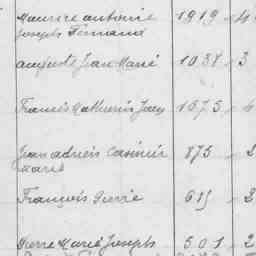 Maurice antoine 1919 4
Joseph Fernand
auguste Jean Marie 1038 3
Francis Mathurin Jean 1075
Jean adrien Casimir 875 2
Marie
François Pierre 685 3
Pierre Marie Joseph 501 2